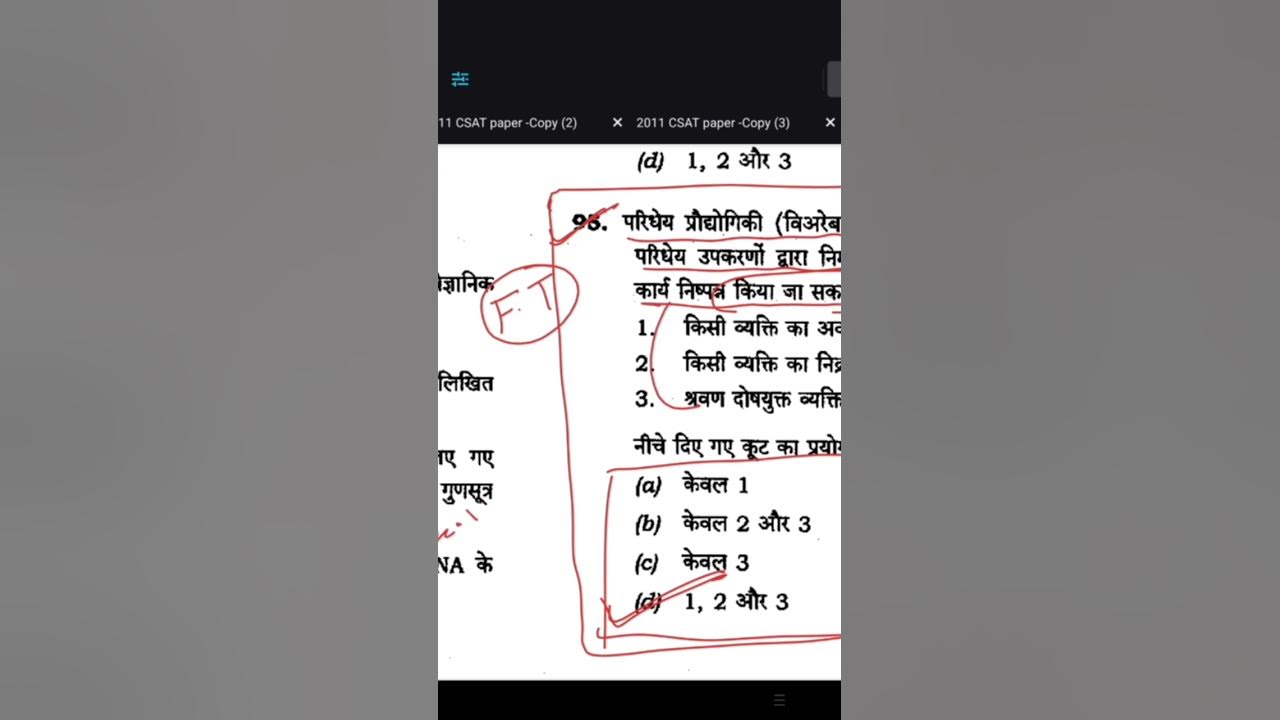 11 CSAT paper -Copy (2) × 2011 CSAT paper -Copy (3) ×
(d) 1, 2 और 3
परिधेय प्रौद्योगिकी (विअरेब
परिधेय उपकरणों द्वारा
कार्य निष्पन्न किया जा सक
1. किसी व्यक्ति का
2. किसी व्यक्ति का
3. श्रवण दोषयुक्त व्यक्ति
नीचे दिए गए कूट का प्रयो
(a) केवल 1
(b) केवल 2 और 3
(c) केवल 3
(d) 1, 2 और 3
F.T
लिखित
गए
गुणसूत्र
NA के